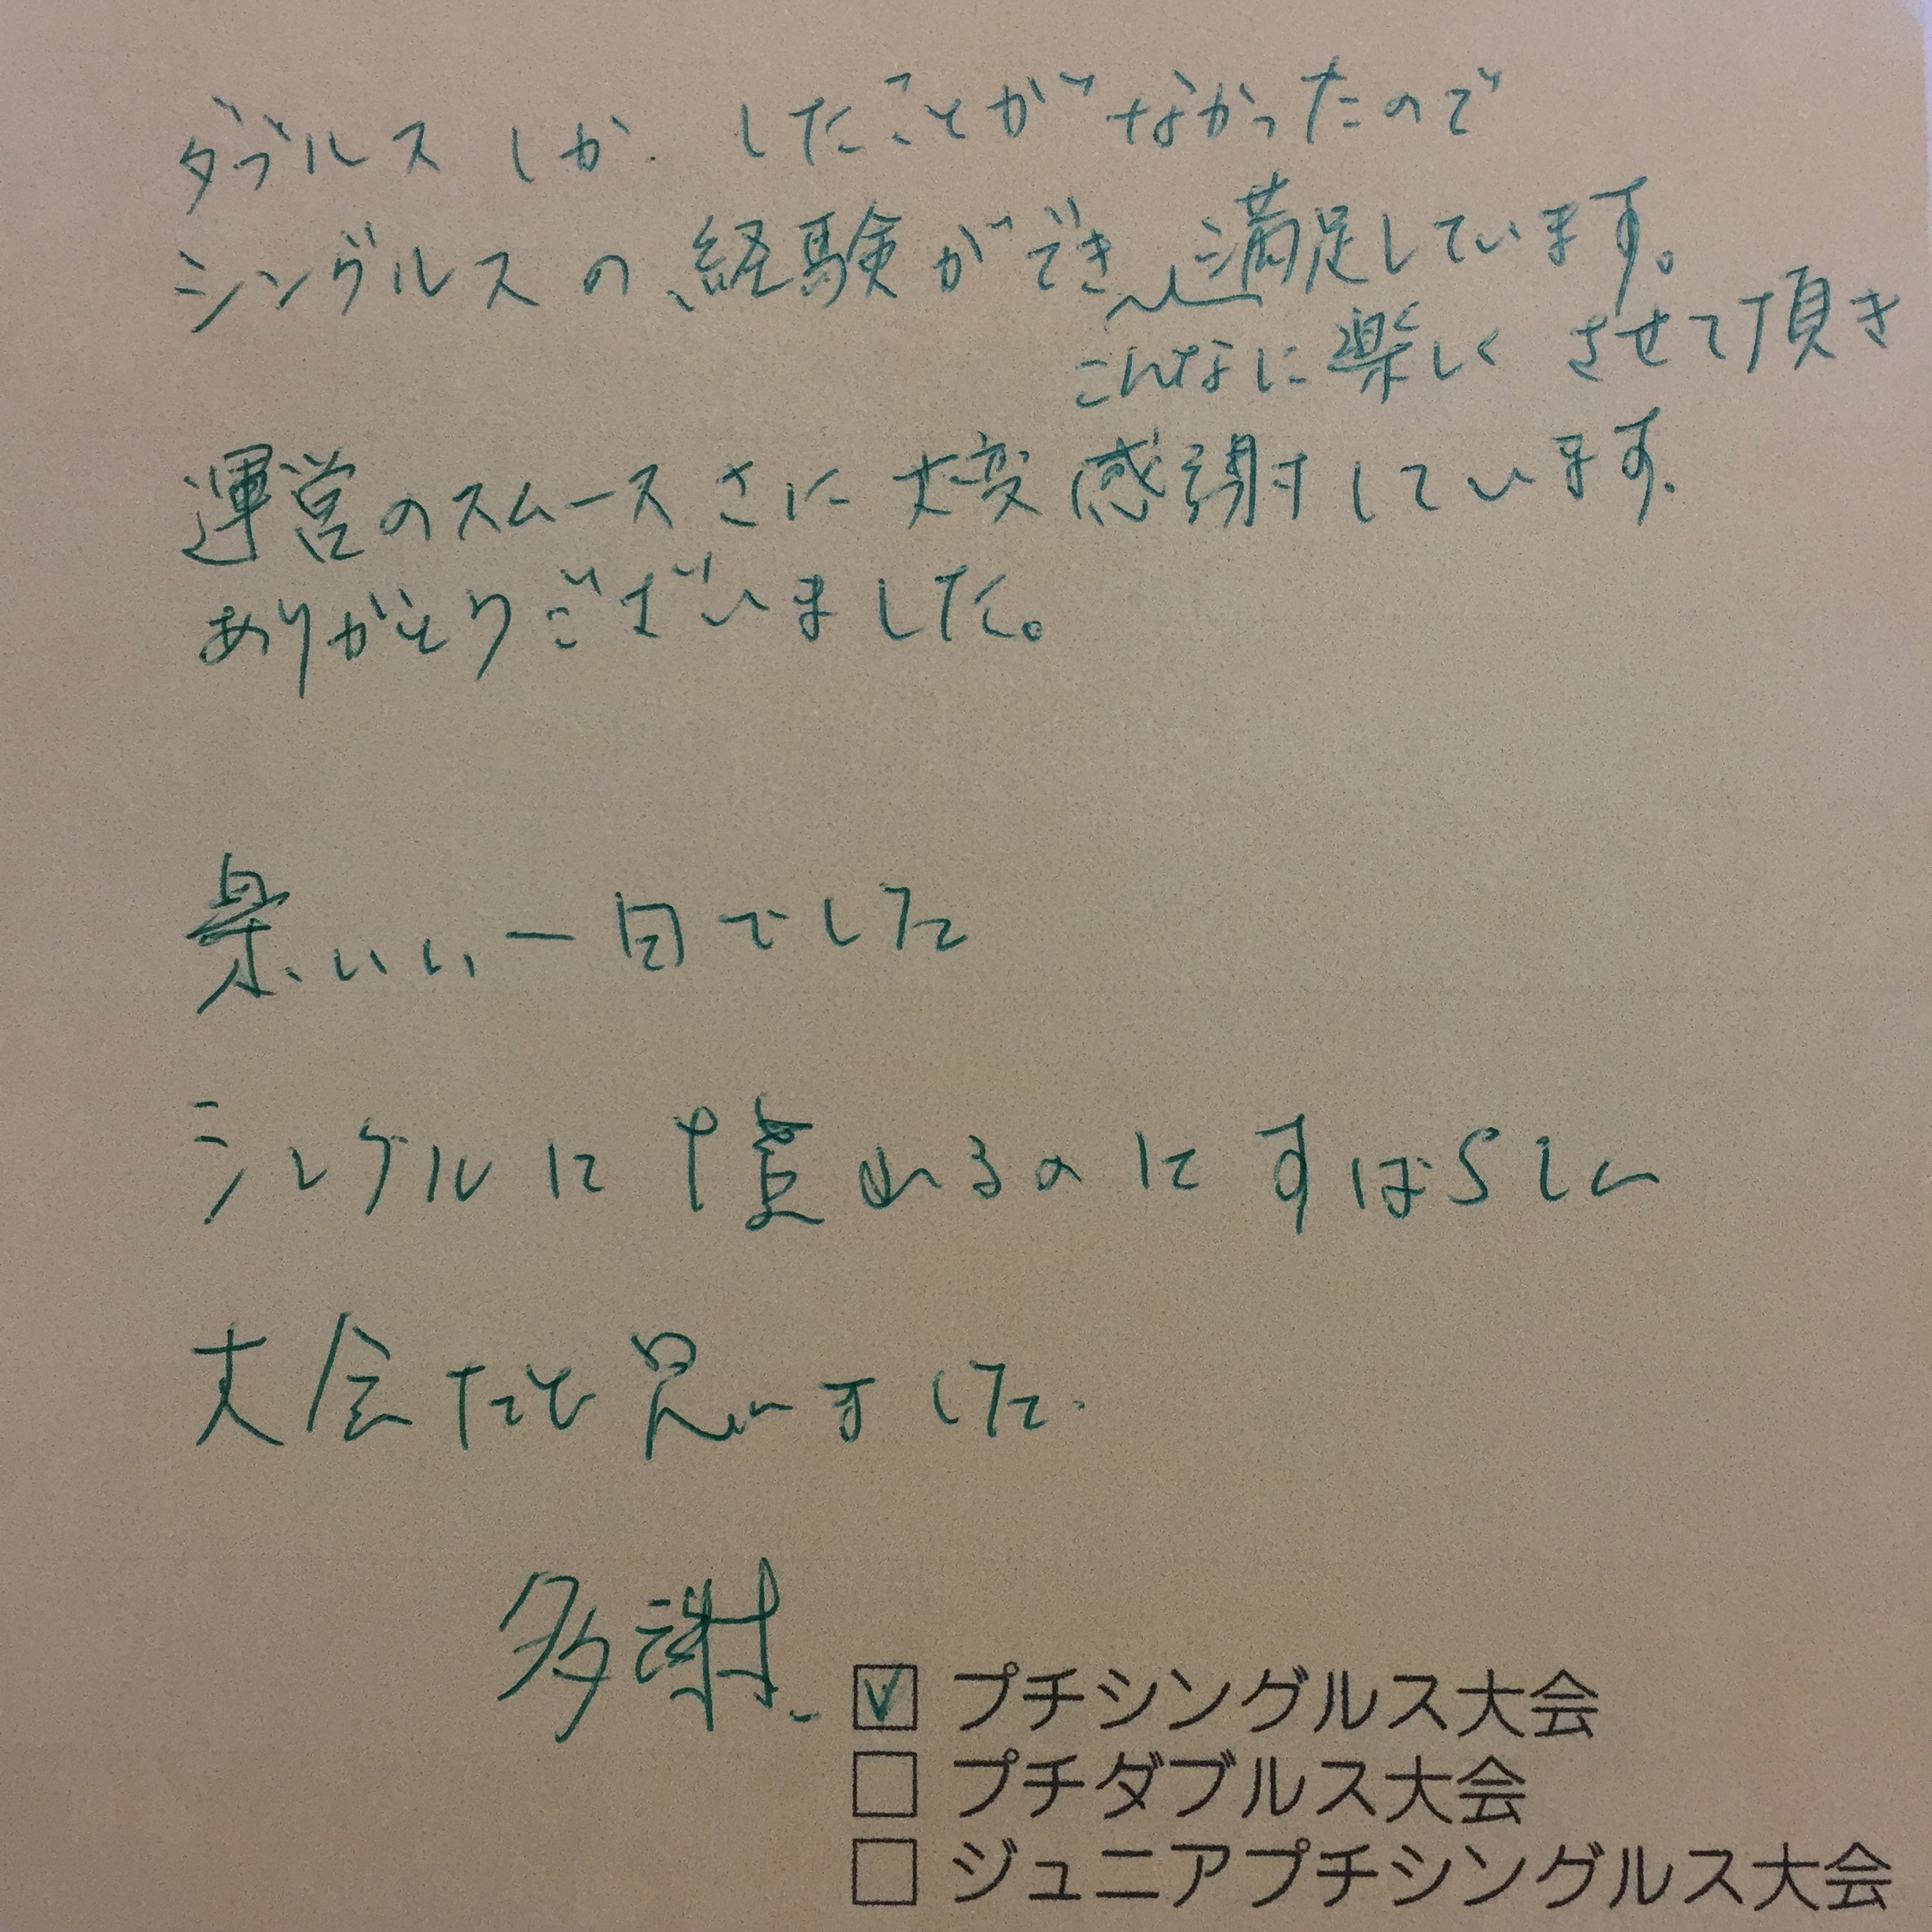 ダブルスしか したことがなかったので
シングルスの経験ができ 満足しています。
こんなに楽しくさせて頂き
運営のスムースさに大変感謝しています.
ありがとうございました。
いい一日でした
シングルに慣れるのにすばらしい
大会だと思いました.
多謝.
プチシングルス大会
プチダブルス大会
ジュニアプチシングルス大会